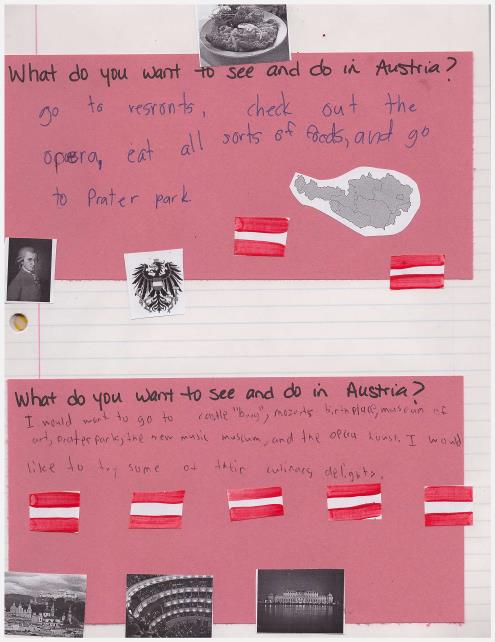 What do you want to see and do in Austria?
go to resronts, check out the
opera, eat all sorts of foods, and go
to Prater park
What do you want to see and do in Austria?
I would want to go to castle "burg", mozarts birthplace, museum of
art, Prater park, the new music museum, and the opera house. I would
like to try some of their culinary delights.